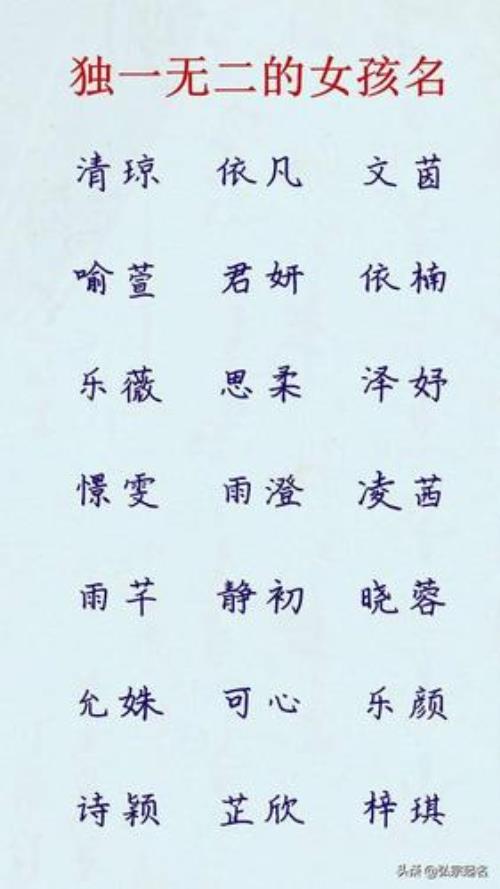 独一无二的女孩名
清琼 依凡 文茵
喻萱 君妍 依楠
乐薇 思柔 泽妤
憬雯 雨澄 凌茜
雨芊 静初 晓蓉
允姝 可心 乐颜
诗颖 芷欣 梓琪
头条 @弘家冠名